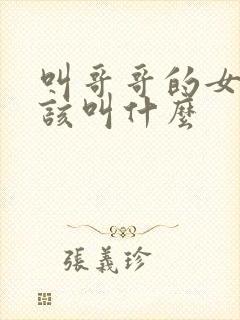 叫哥哥的女
该叫什麼
張義珍